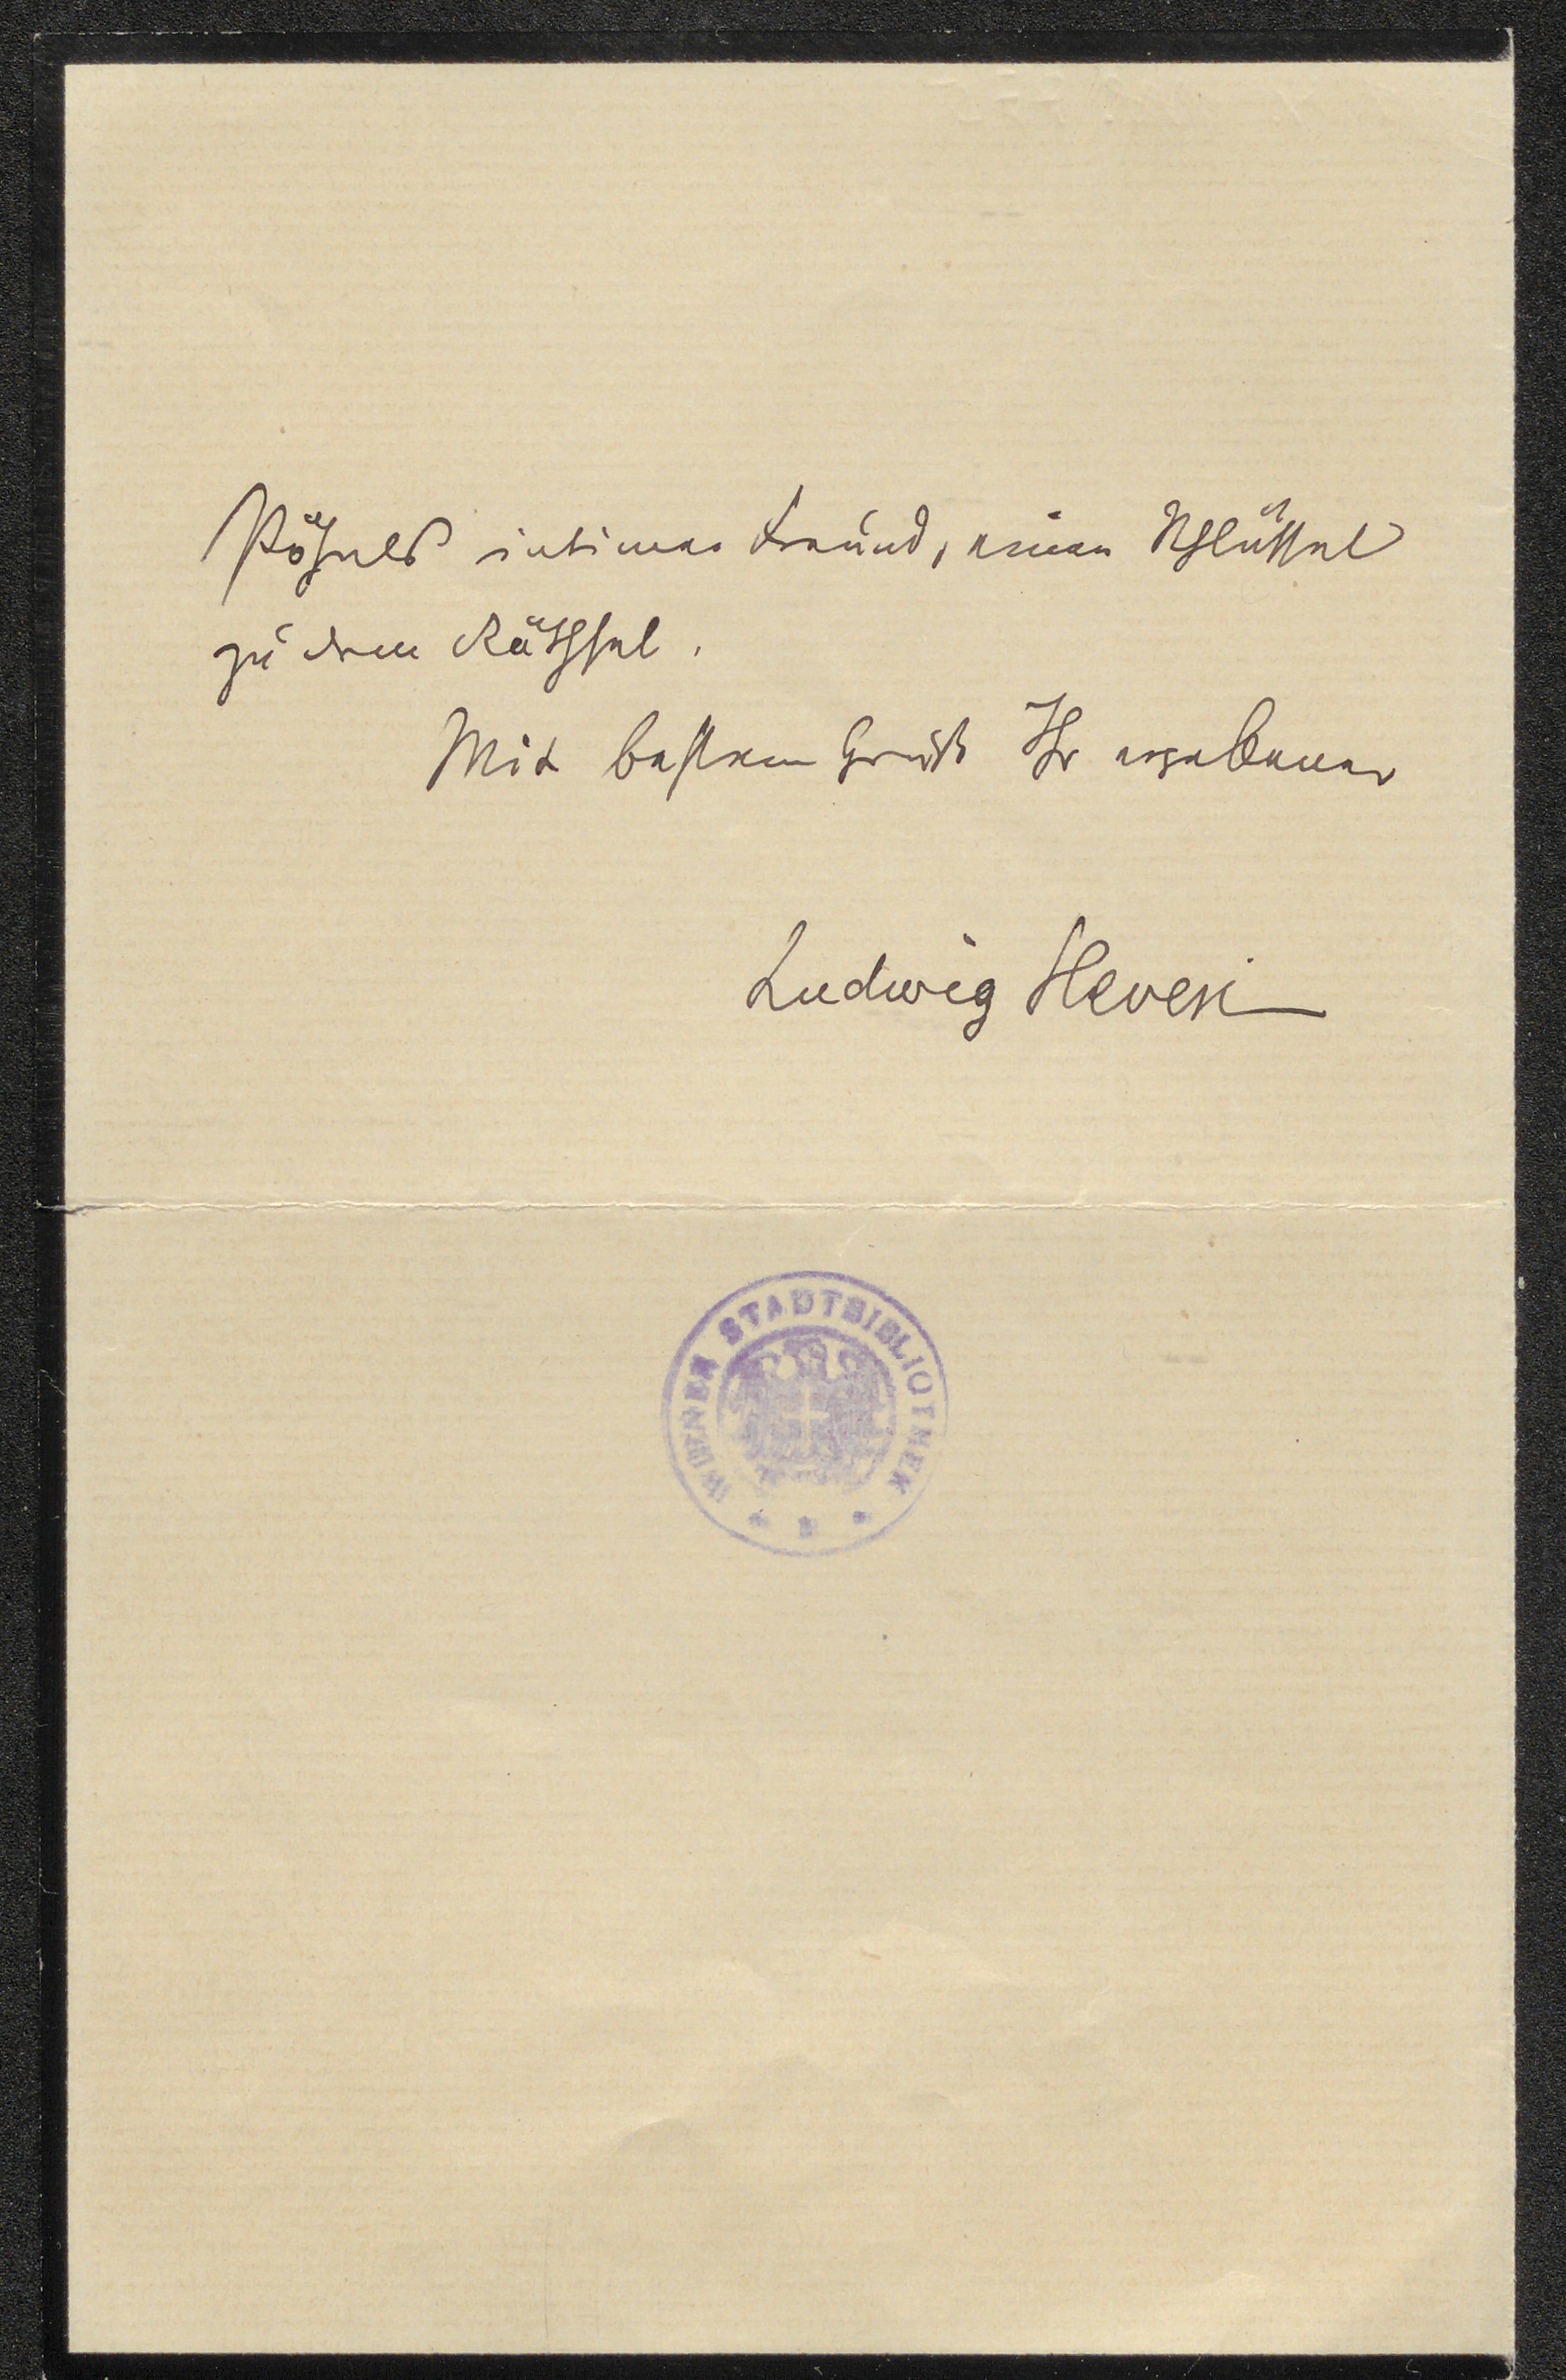 Pöhnls intimer Freund, einen Schlüssel
zu dem Räthsel.
Mit bestem Gruß Ihr ergebener
Ludwig Hevesi
WIENER STADTBIBLIOTHEK